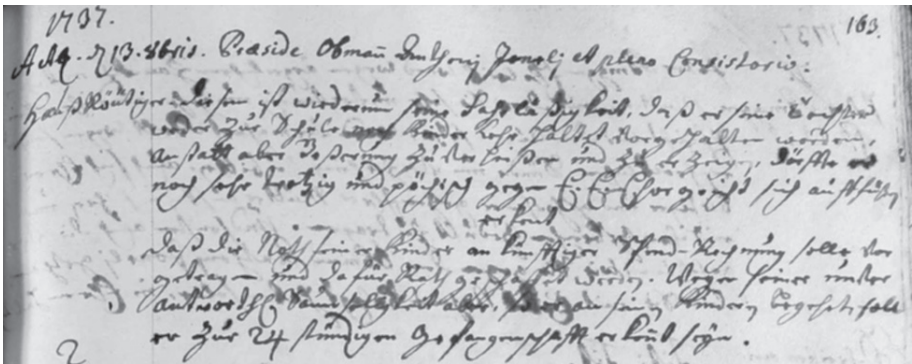 1737.
163.
Act. d. 13. 8bris. Præside Obman Anthenj Jonelj et pleno Consistorio.
Hanß Räutiger. Diesem ist wiederum seine Fahrläßigkeit, daß er seine Töchter
weder zur Schule noch Kinder Lehr haltet vorgehalten worden,
anstatt aber Beßerung zu verheißen und zu erzeigen, dörffte er
noch sehr trotzig und pöchisch gegen E. E. Chorgricht sich aufführen
erkent
daß die Noth seiner Kinder an künfftiger Spend-Rechnung solle vor
getragen und dafür Rath geschaffet werden. Wegen seiner
Saumseligkeit aber, so er an seinen Kinderen begehet, soll
er zur 24 stündigen Gefangenschafft erkent seyn.
2